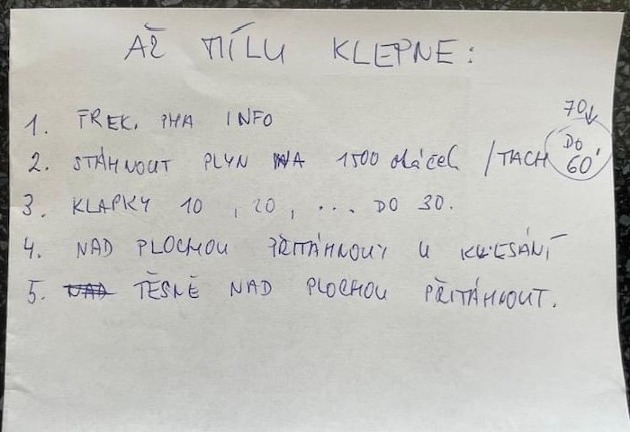 AŽ MÍLU KLEPNE:
1. FREK. PHA INFO
70↓
2. STÁHNOUT PLYN NA 1500 otáček / TACH DO 60'
3. KLAPKY 10, 20, ... DO 30.
4. NAD PLOCHOU PŘITÁHNOUT U KLESÁNÍ
5. NAD TĚSNĚ NAD PLOCHOU PŘITÁHNOUT.